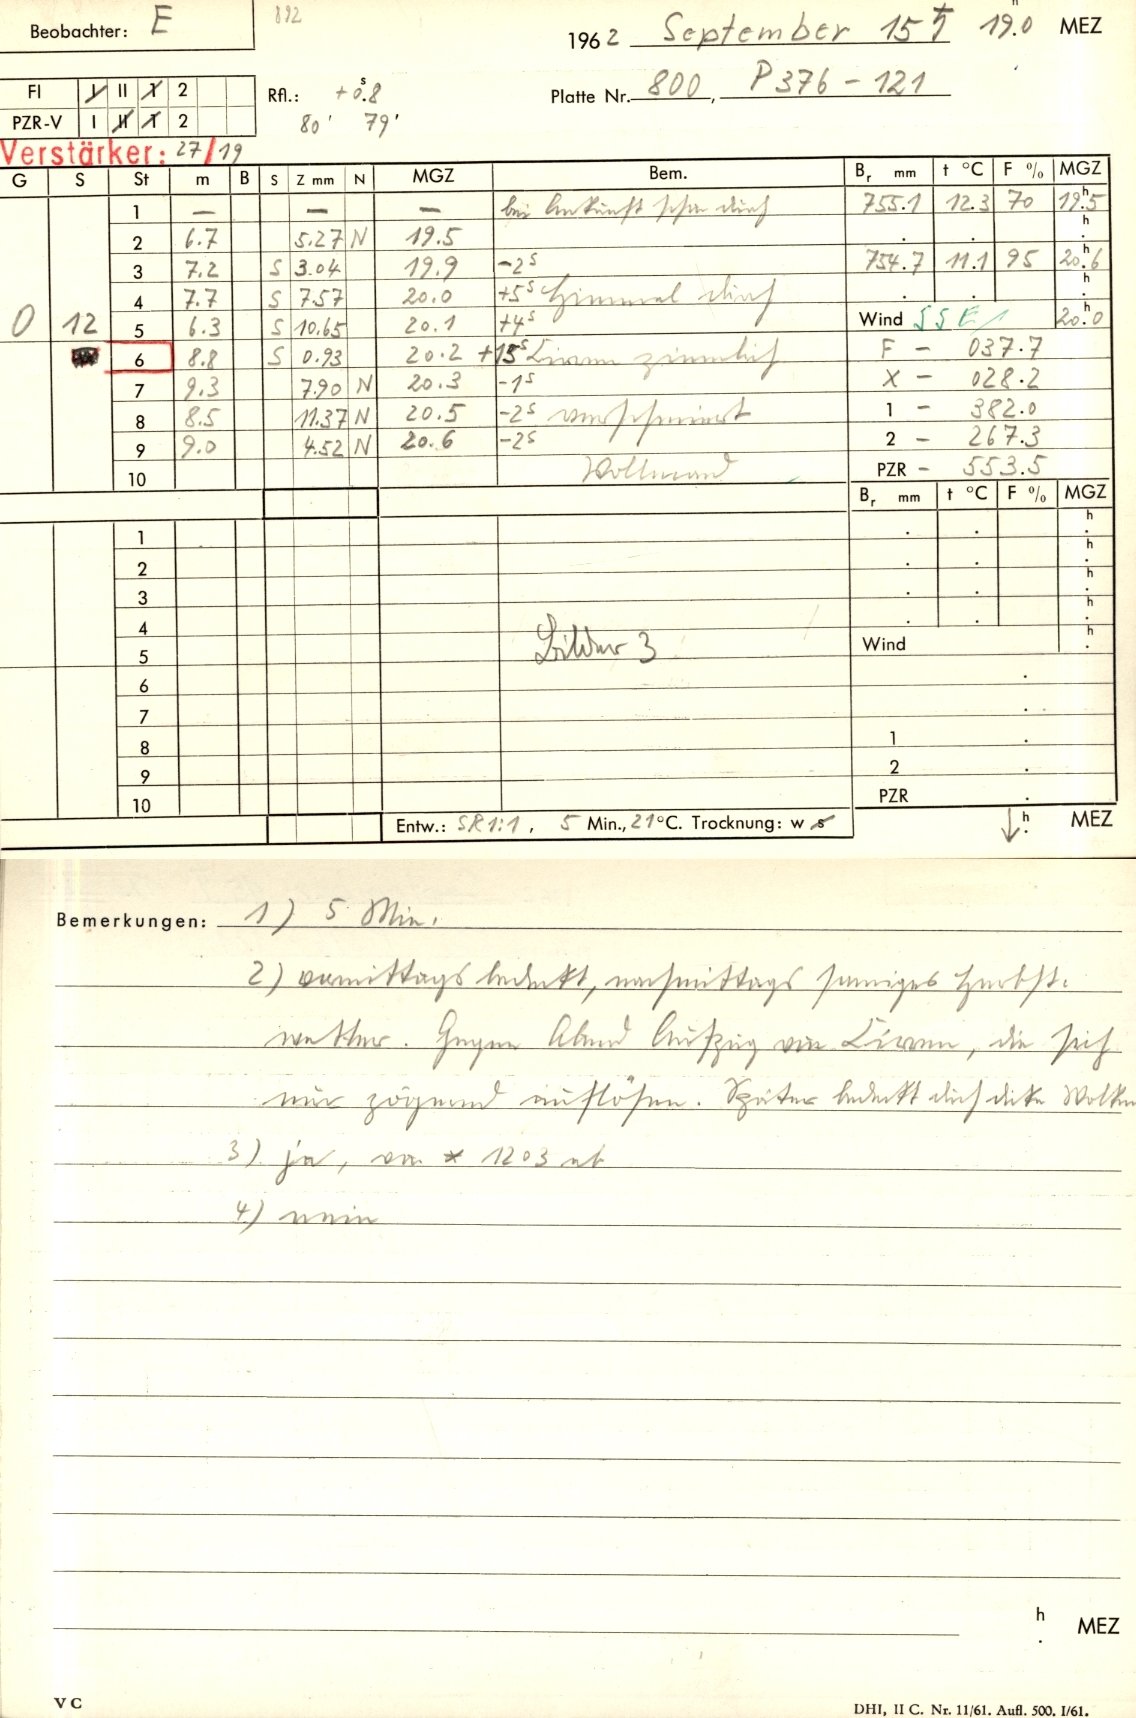 Beobachter: E 892
1962 September 15 ♄ 19.0 h MEZ
FI I II 1 2 Rfl.: + 0.8 s
Platte Nr. 800, P 376 - 121
PZR-V I II 1 2 80' 79'
Verstärker: 27/19
G S St m B S Z mm N MGZ Bem. Br mm t °C F % MGZ
1 — — — bei Ankunft schon 755.1 12.3 70 19.5 h
2 6.7 5.27 N 19.5 . . h .
3 7.2 S 3.04 19.9 -2 s 754.7 11.1 95 20.6 h
4 7.7 S 7.57 20.0 +5 s Himmel . . h .
0 12 5 6.3 S 10.65 20.1 +4 s Wind SSE 1 20.0 h
6 8.8 S 0.93 20.2 +15 s Cirren ziemlich F - 037.7
7 9.3 7.90 N 20.3 -1 s X - 028.2
8 8.5 11.37 N 20.5 -2 s verschmiert 1 - 382.0
9 9.0 4.52 N 20.6 -2 s 2 - 267.3
10 Vollmond PZR - 553.5
Br mm t °C F % MGZ
1 . . h .
2 . . h .
3 . . h .
4 . . h .
5 Bilder 3 Wind h .
6 .
7 .
8 1 .
9 2 .
10 PZR .
Entw.: SR 1:1, 5 Min., 21 °C. Trocknung: w s h . MEZ
Bemerkungen: 1) 5 Min.
2) vormittags bedeckt, nachmittags sonniges Herbst-
wetter. Gegen Abend Aufzug von Cirren, die sich
nur zögernd auflösen. Später bedeckt durch dicke Wolken
3) ja, von * 1203 ab
4) nein
h . MEZ
V C
DHI, II C. Nr. 11/61. Aufl. 500. I/61.